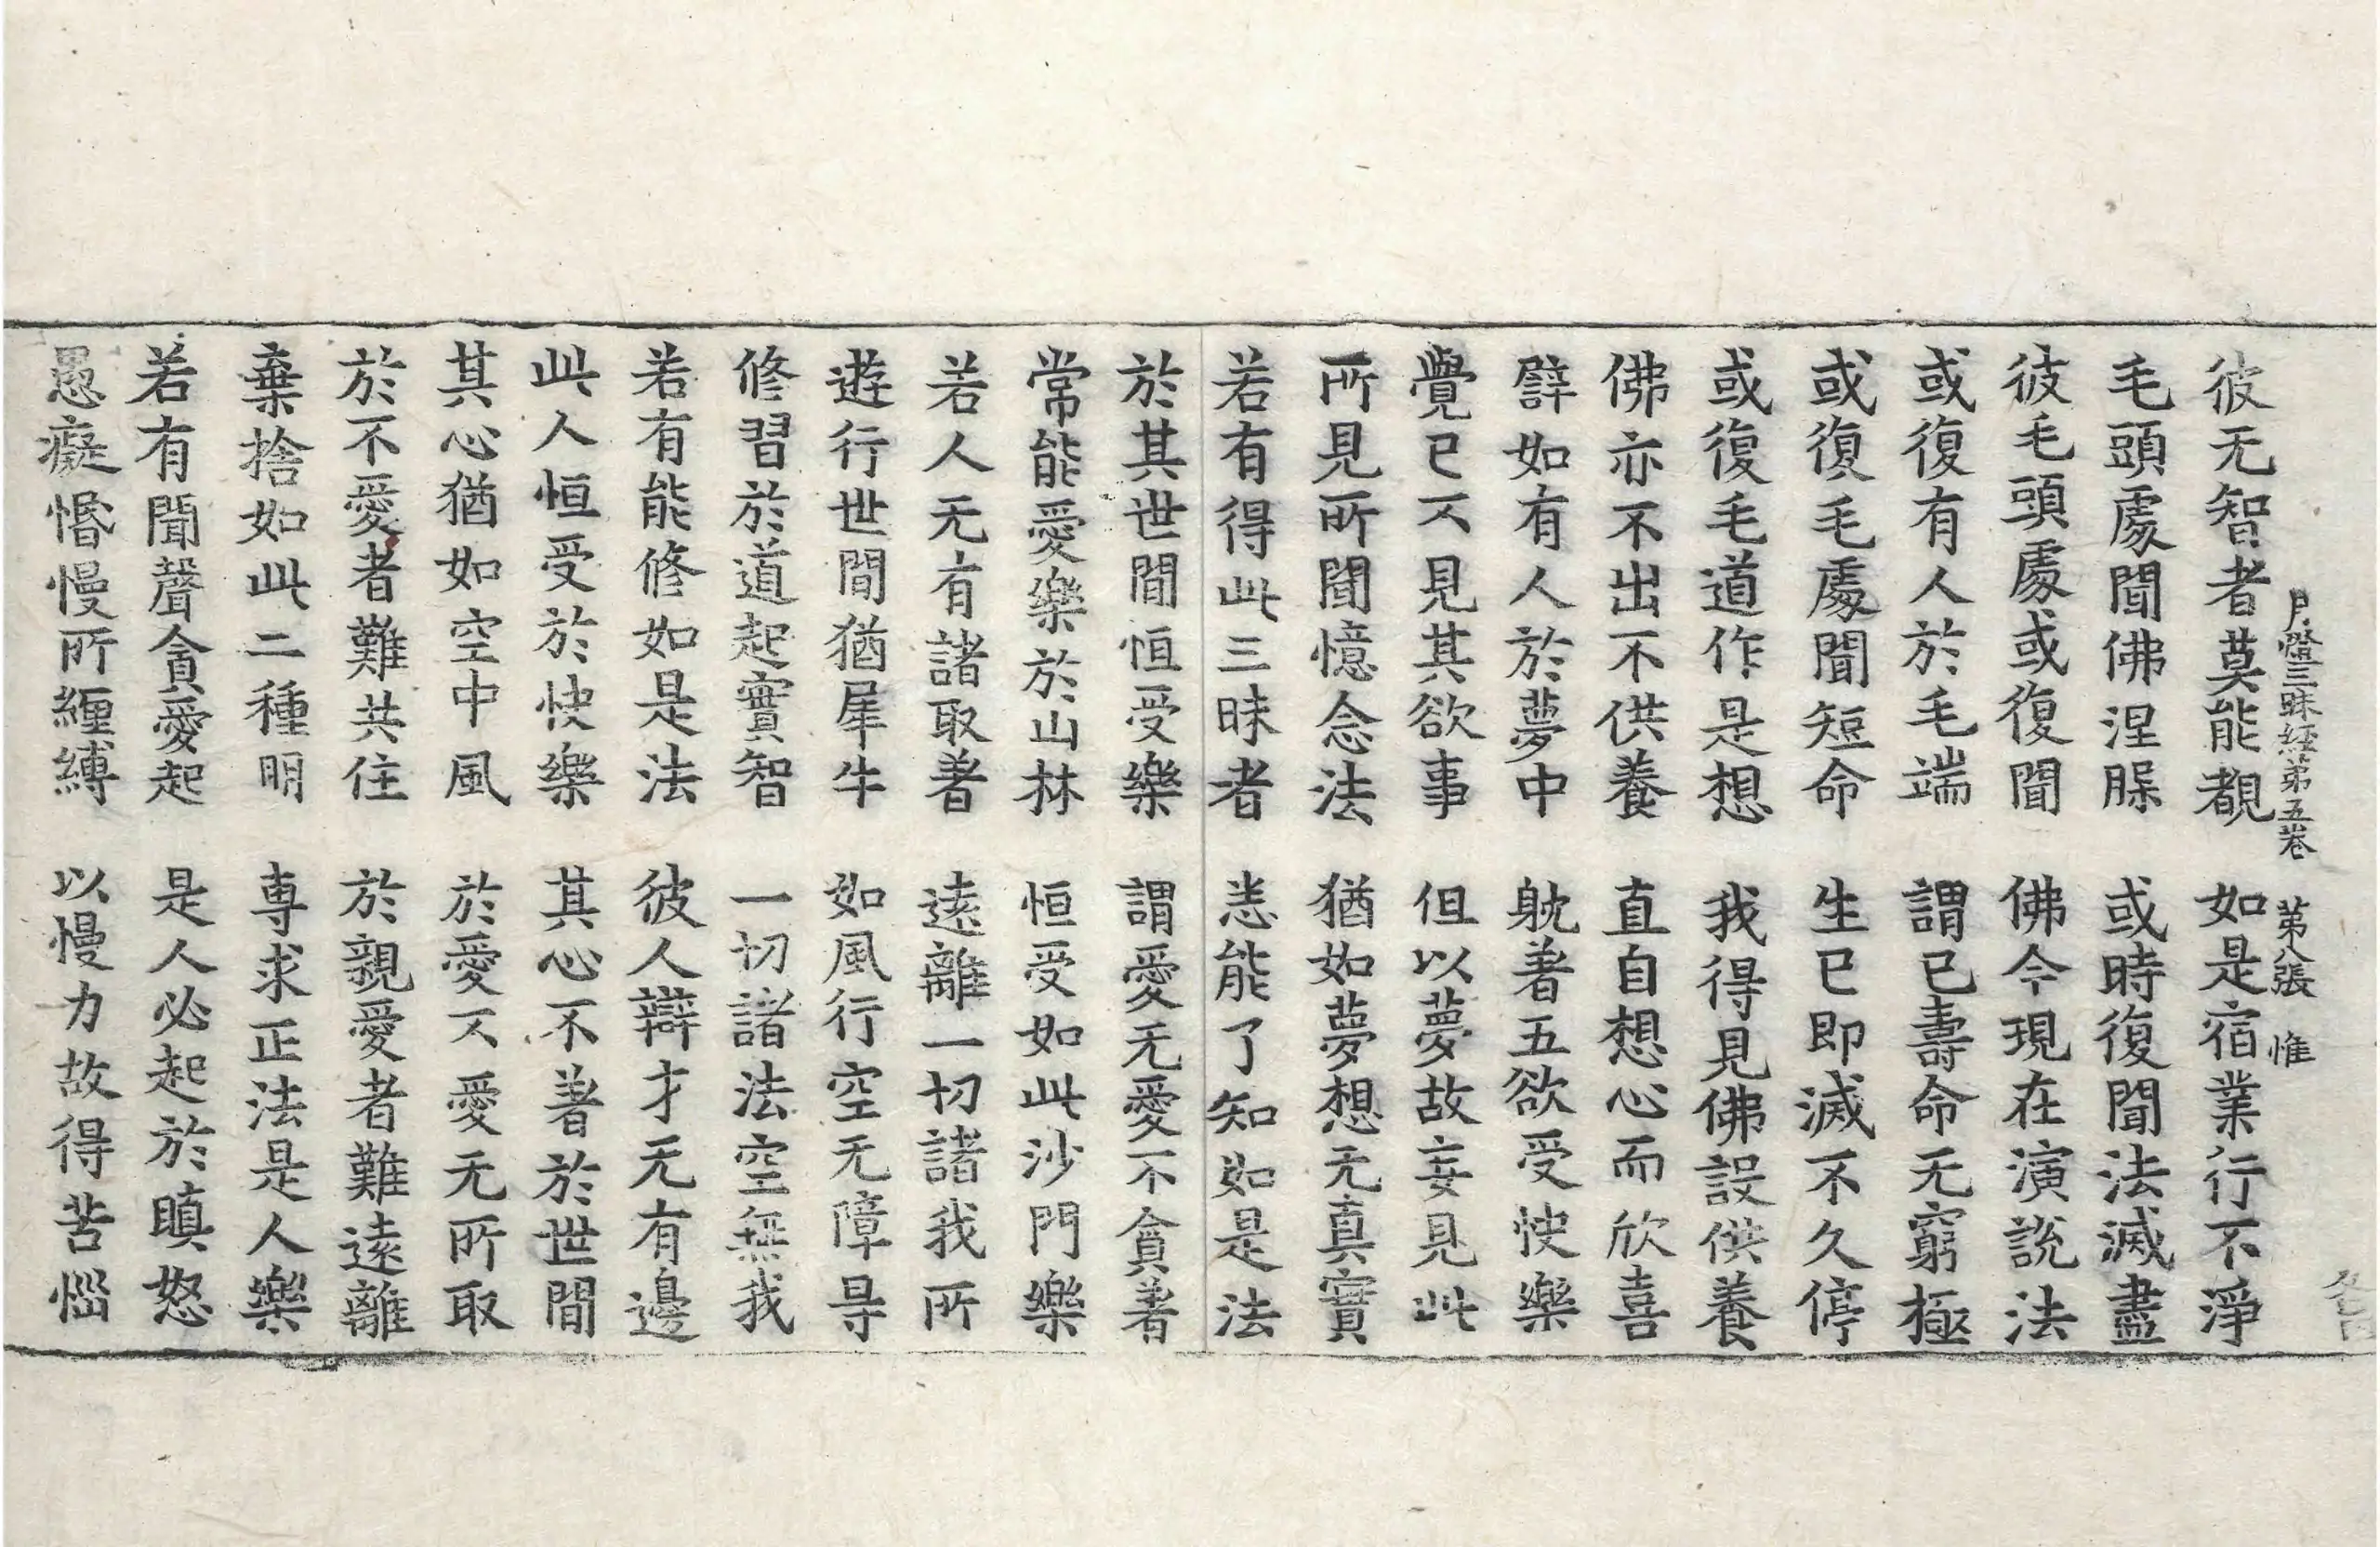 月燈三昧経苐五巻 苐八張 惟
彼无智者莫能覩 如是宿業行不淨
毛頭處聞佛涅腺 或時復聞法滅盡
彼毛頭處或復聞 佛今現在演說法
或復有人於毛端 謂已壽命无窮極
或復毛處聞短命 生已即滅不久停
或復毛道作是想 我得見佛設供養
佛亦不出不供養 直自想心而欣喜
譬如有人於夢中 躭著五欲受快樂
覺已不見其欲事 但以夢故妄見此
所見所聞憶念法 猶如夢想无真實
若有得此三昧者 悉能了知如是法
於其世間恒受樂 謂愛无愛不貪著
常能愛樂於山林 恒受如此沙門樂
若人无有諸取著 遠離一切諸我所
遊行世間猶犀牛 如風行空无障㝵
修習於道起實智 一切諸法空無我
若有能修如是法 彼人辯才无有邊
此人恒受於快樂 其心不著於世間
其心猶如空中風 於愛不愛无所取
於不愛者難共住 於親愛者難遠離
棄捨如此二種明 專求正法是人樂
若有聞聲貪愛起 是人必起於瞋怒
愚癡惛慢所纒縛 以慢力故得苦惱